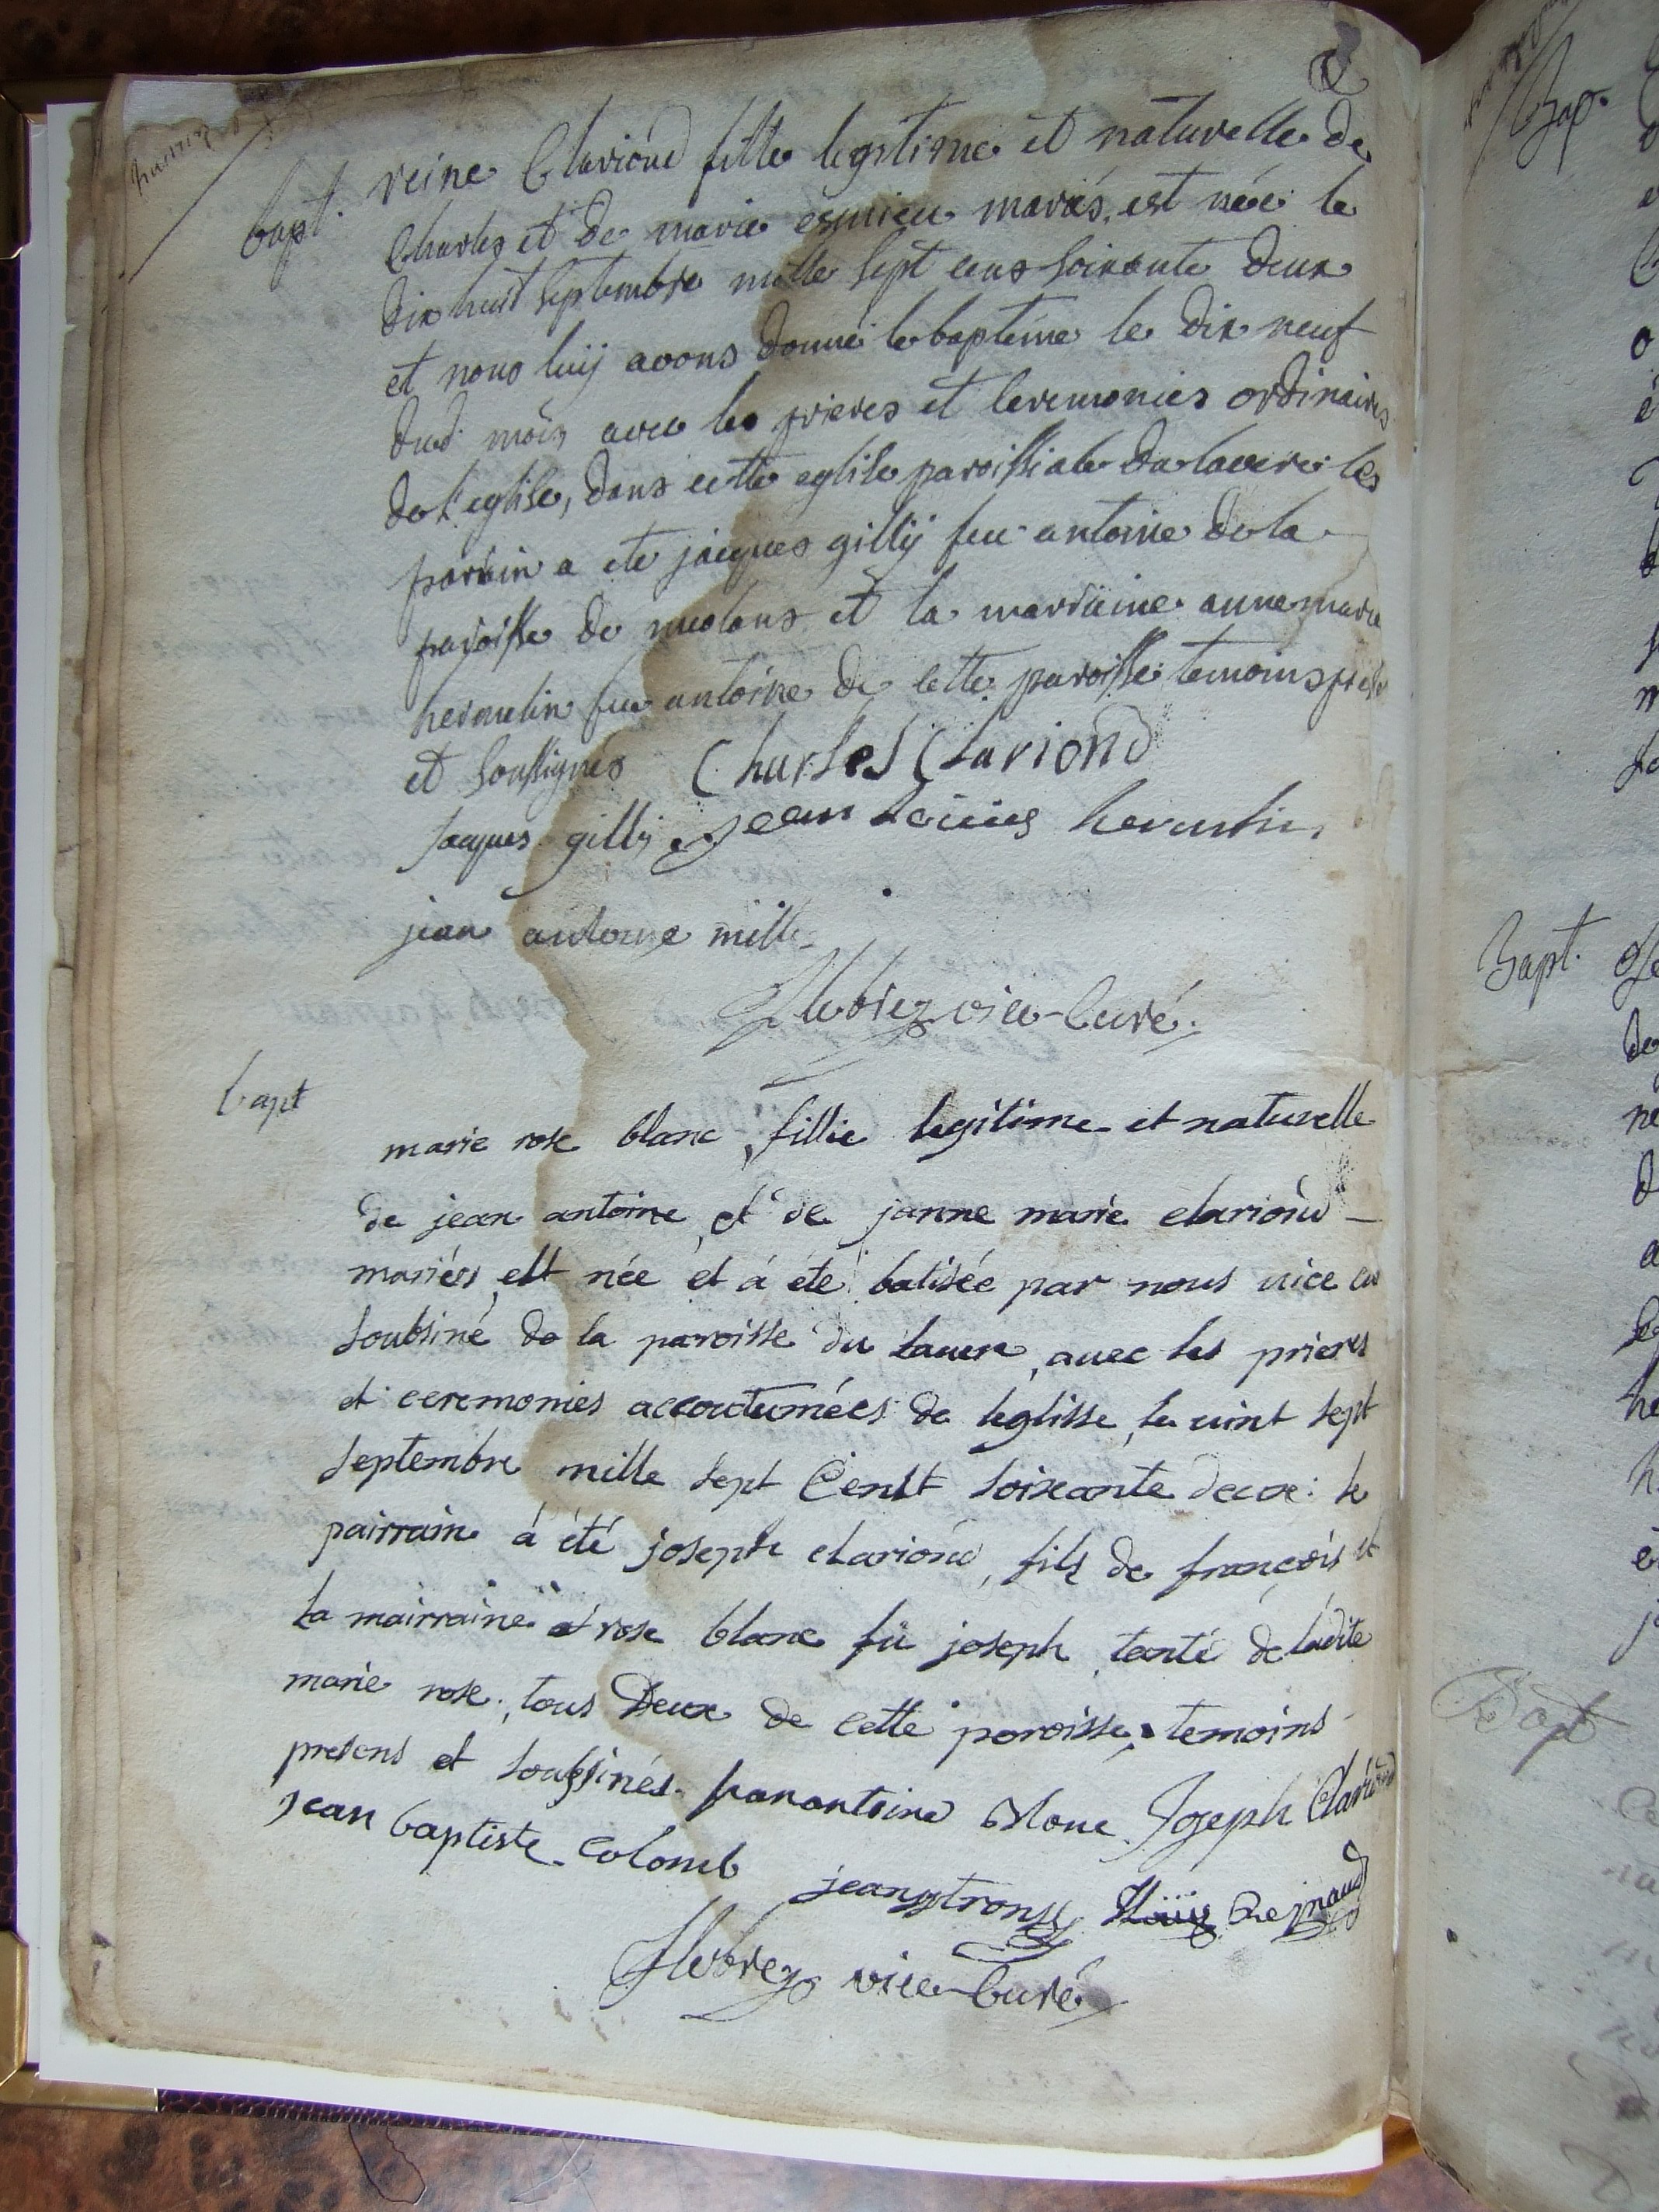 bapt. reine Clariond fille legitime et naturelle de
Charles et de marie esmieu mariés, est née le
dix huit septembre mille sept cens soixante deux
et nous luÿ avons donné le bapteme le dix neuf
dud. mois, avec les prieres et ceremonies ordinaires
de l'eglise, dans cette eglise paroissiale du laverc les
parrain a ete jacques gillÿ feu antoine de la
paroisse de meolans et la marraine anne marie
hermelin feu antoine de cette paroisse temoins
et soussignés Charles Clariond
Jaques gilli jean Louis
jean antoine mille
vice-Curé.
bapt
marie rose blanc, fillie legitime et naturelle
de jean antoine, et de janne marie clariond
mariés, est née et á éte batisée par nous vice cu
soubsiné de la paroisse du laverc, avec les prieres
et ceremonies accoutumées de leglisse, le vint sept
septembre mille sept Censt soixante deux: le
pairrain á été joseph clariond, fils de françois et
la mairraine rose blanc fû joseph, tante de ladite
marie rose, tous Deux de Cette paroisse, temoins
presens et soubsinés. Joseph Clariond
jean baptiste Colomb Reynaud
vice-Curé
Bap.
Bapt.
Bapt